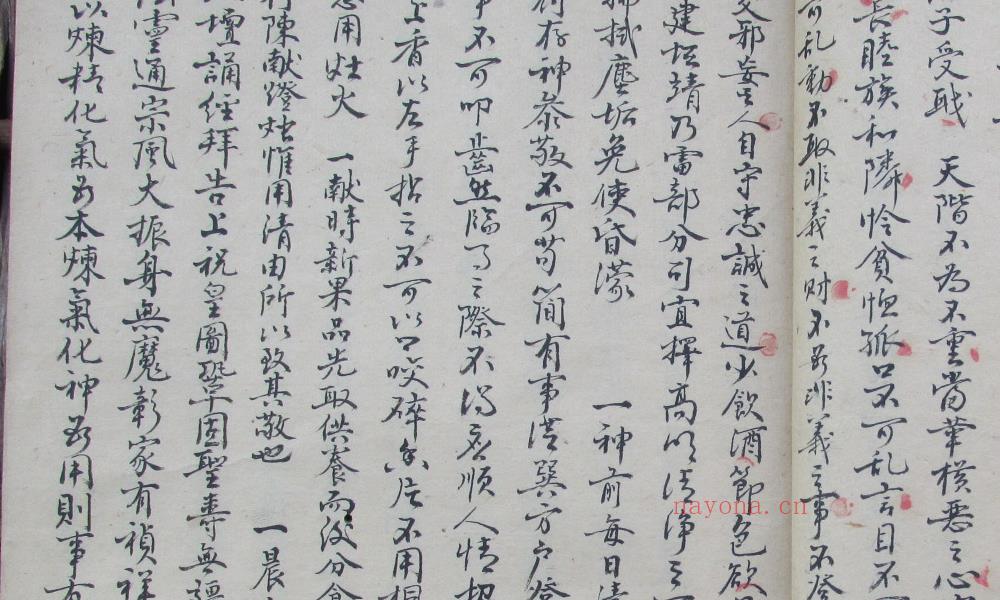 子受戒 天階不為不重當革橫惡之心
長睦族和隣怜貧恤孤口不可乱言目不
可乱動不取非義之财不為非義之事不登
交邪妄之人自守忠誠之道少飲酒節色欲
建坛靖乃雷部分司宜擇高明清净之
拂拭塵垢免使昏濛 一神前每日清
存神恭敬不可苟簡有事從巽方户登
不可叩齒然臨了之際不得 順人情切
上香以左手拈之不可以口咬碎 不用相
忌用灶火 一献時新果品先取供養而後分食
陳献燈烛惟用清油所以致其敬也 一晨
壇誦經拜告上祝皇圖鞏固聖壽無疆
靈通宗風大振身無魔彰家有禎祥
以煉精化氣為本煉氣化神為用則事有
nayona.cn